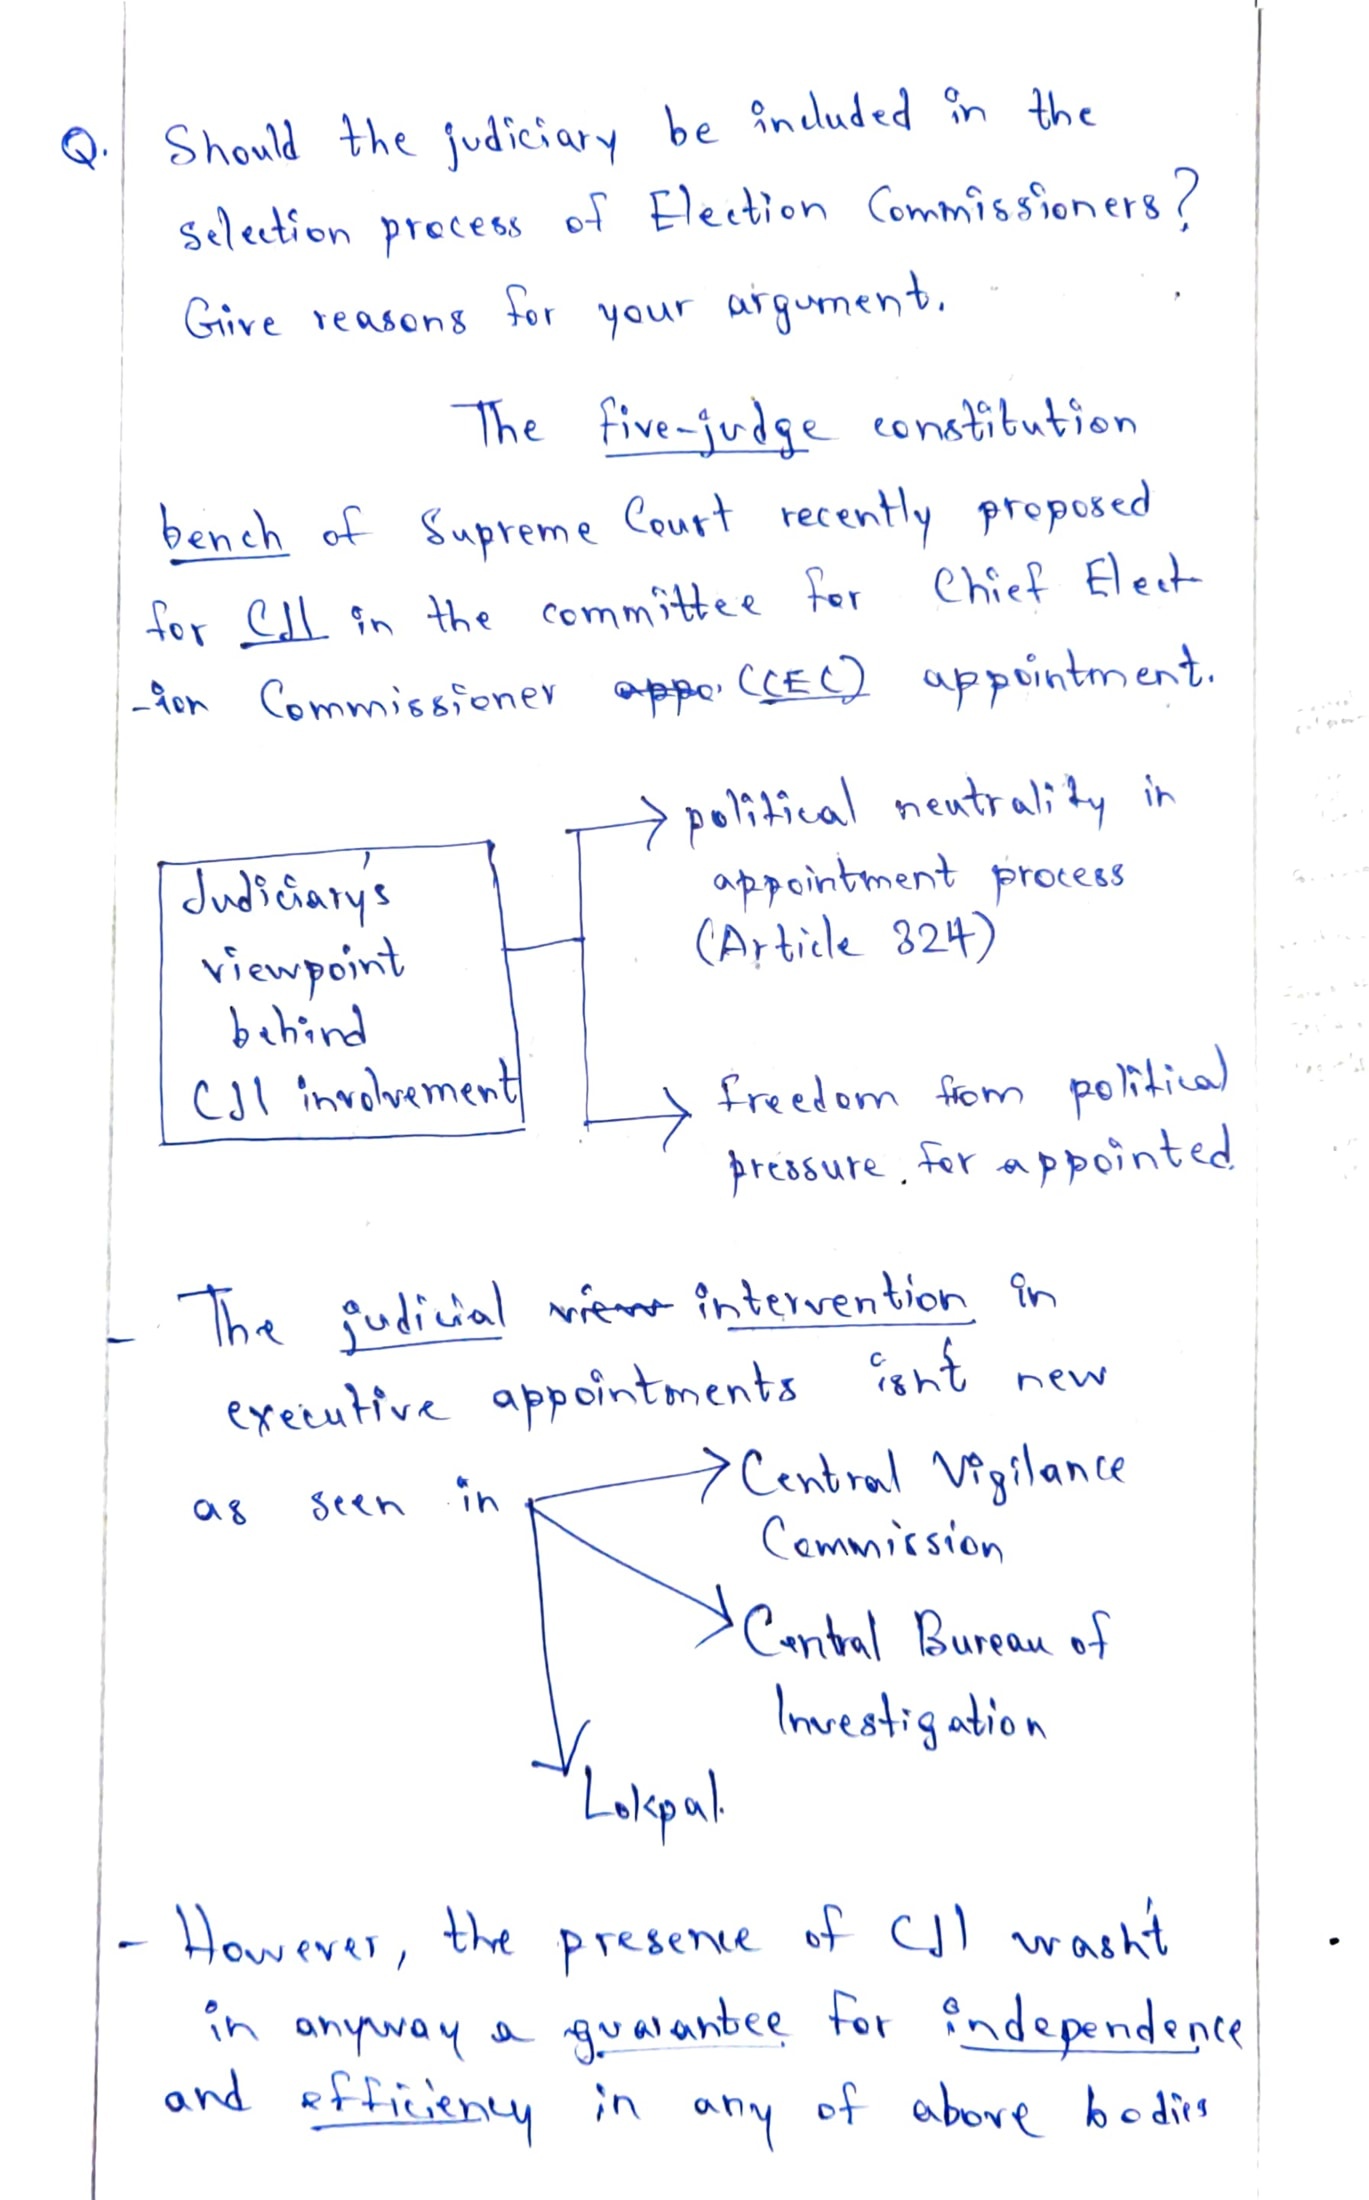 Q. Should the judiciary be included in the
selection process of Election Commissioners?
Give reasons for your argument.
The five-judge constitution
bench of Supreme Court recently proposed
for CJI in the committee for Chief Elect
-ion Commissioner appo. (CEC) appointment.
Judiciary's
viewpoint
behind
CJI involvement
→ political neutrality in
appointment process
(Article 324)
→ freedom from political
pressure for appointed
- The judicial view intervention in
executive appointments isn't new
as seen in
→ Central Vigilance
Commission
→ Central Bureau of
Investigation
Lokpal.
- However, the presence of CJI wasn't
in anyway a guarantee for independence
and efficiency in any of above bodies